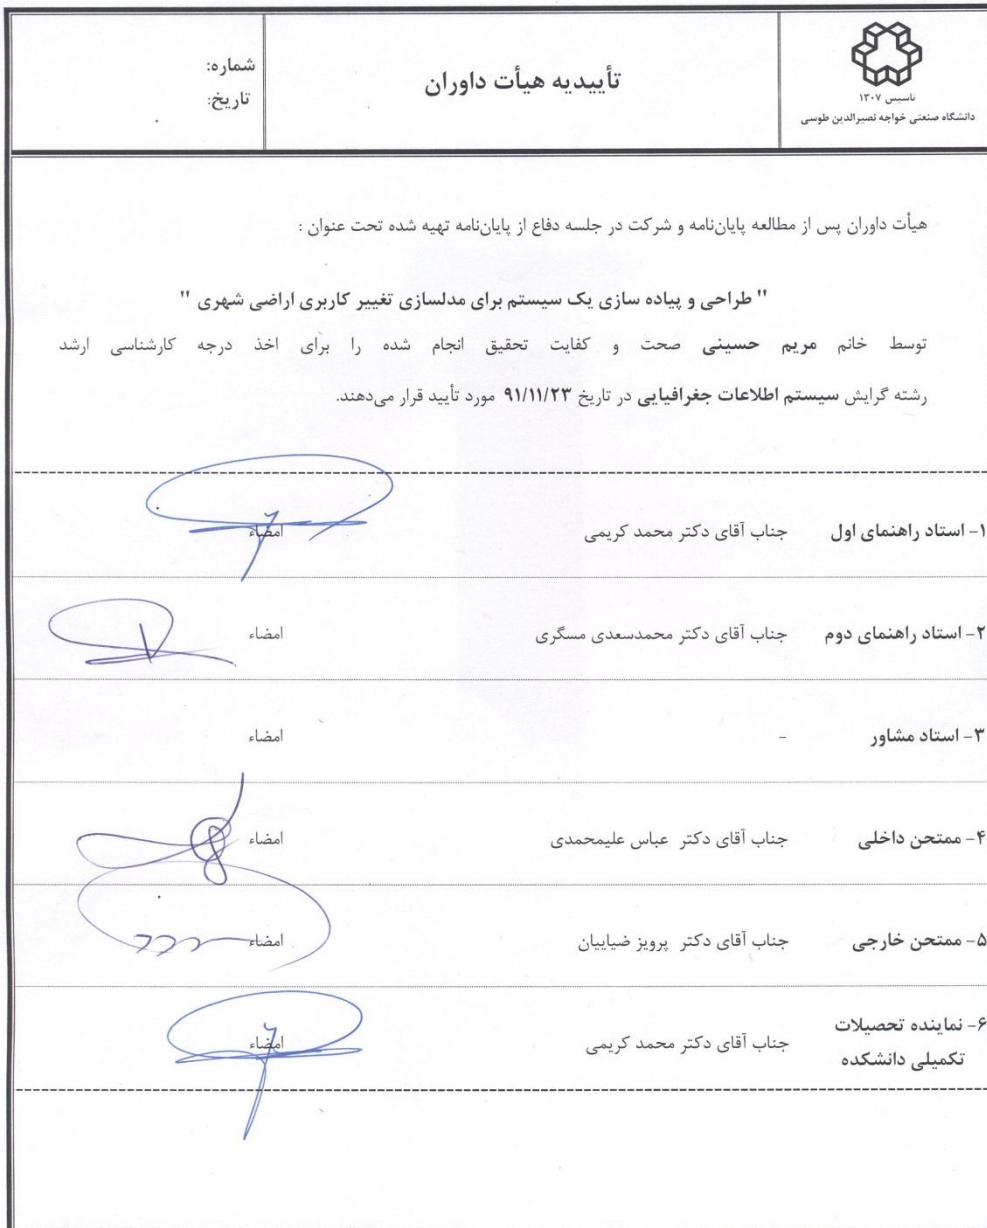 تاسیس ۱۳۰۷
دانشگاه صنعتی خواجه نصیرالدین طوسی
تأییدیه هیأت داوران
شماره:
تاریخ:
هیأت داوران پس از مطالعه پایان‌نامه و شرکت در جلسه دفاع از پایان‌نامه تهیه شده تحت عنوان :
" طراحی و پیاده سازی یک سیستم برای مدلسازی تغییر کاربری اراضی شهری "
توسط خانم مریم حسینی صحت و کفایت تحقیق انجام شده را برای اخذ درجه کارشناسی ارشد
رشته گرایش سیستم اطلاعات جغرافیایی در تاریخ ۹۱/۱۱/۲۳ مورد تأیید قرار می‌دهند.
۱- استاد راهنمای اول جناب آقای دکتر محمد کریمی امضاء
۲- استاد راهنمای دوم جناب آقای دکتر محمدسعدی مسگری امضاء
۳- استاد مشاور - امضاء
۴- ممتحن داخلی جناب آقای دکتر عباس علیمحمدی امضاء
۵- ممتحن خارجی جناب آقای دکتر پرویز ضیاییان امضاء
۶- نماینده تحصیلات
تکمیلی دانشکده جناب آقای دکتر محمد کریمی امضاء